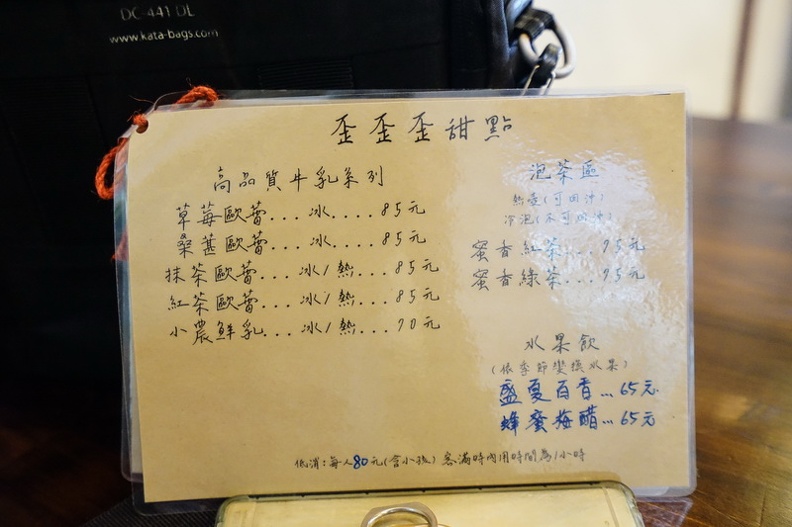 DC-441 DL
www.kata-bags.com
歪歪歪甜點
高品質牛乳系列
草莓歐蕾...冰....85元
桑葚歐蕾...冰....85元
抹茶歐蕾...冰/熱...85元
紅茶歐蕾...冰/熱...85元
小農鮮乳...冰/熱...70元
泡茶區
熱壺(可回沖)
冷泡(不可回沖)
蜜香紅茶...95元
蜜香綠茶...95元
水果飲
(依季節變換水果)
盛夏百香...65元
蜂蜜梅醋...65元
低消:每人80元(含小孩) 客滿時內用時間為1小時